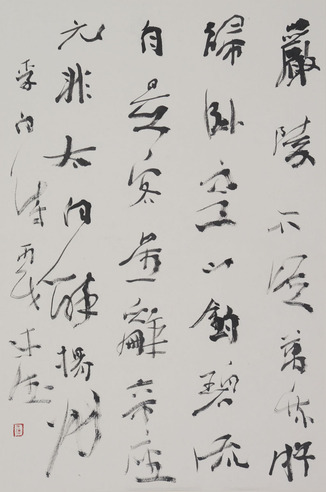 嚴陵不從萬乘游
歸臥空山釣碧流
自是客星辭帝座
元非太白醉揚州
李白詩丙戌